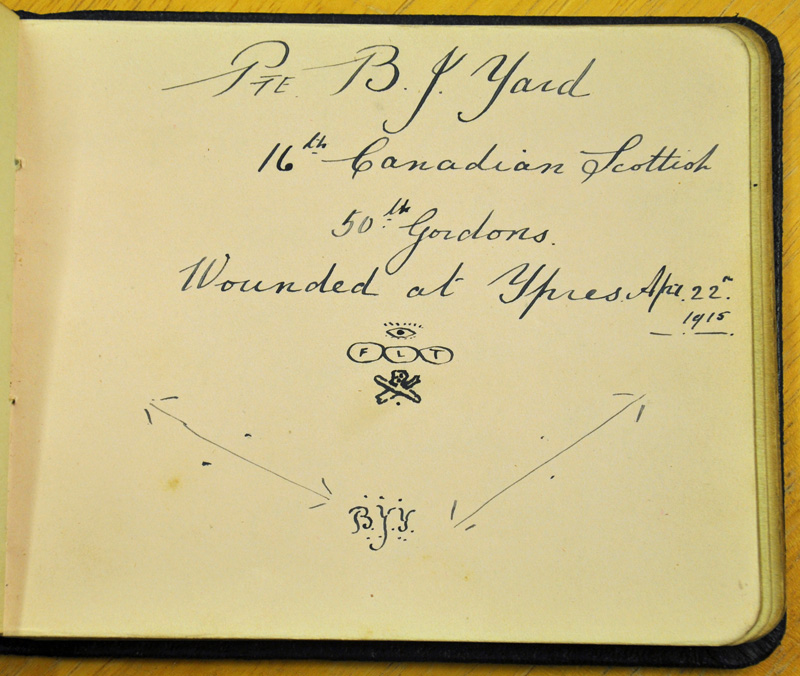 Pte. B. J. Yard
16th Canadian Scottish
50th Gordons.
Wounded at Ypres. Apr. 22n.
1915
F L T
B.J.Y.